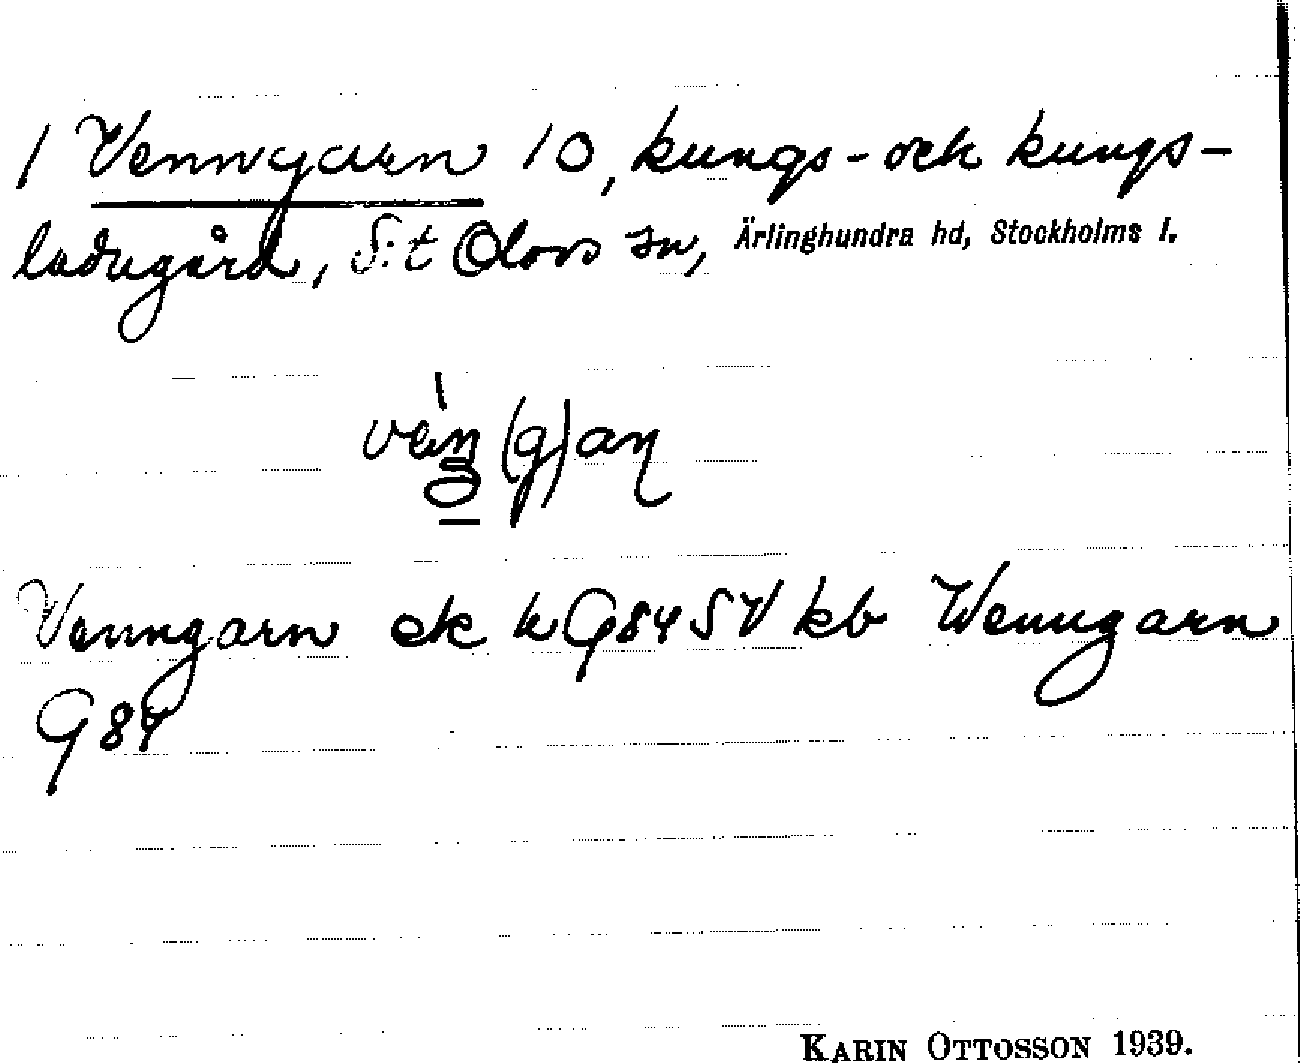 1 Venngarn 10, kungs- och kungs-
ladugård, S:t Olovs sn, Ärlinghundra hd, Stockholms l.
(g)aɳ
Venngarn ek k G84 SV kb Wenngarn
G 84
KARIN OTTOSSON 1939.